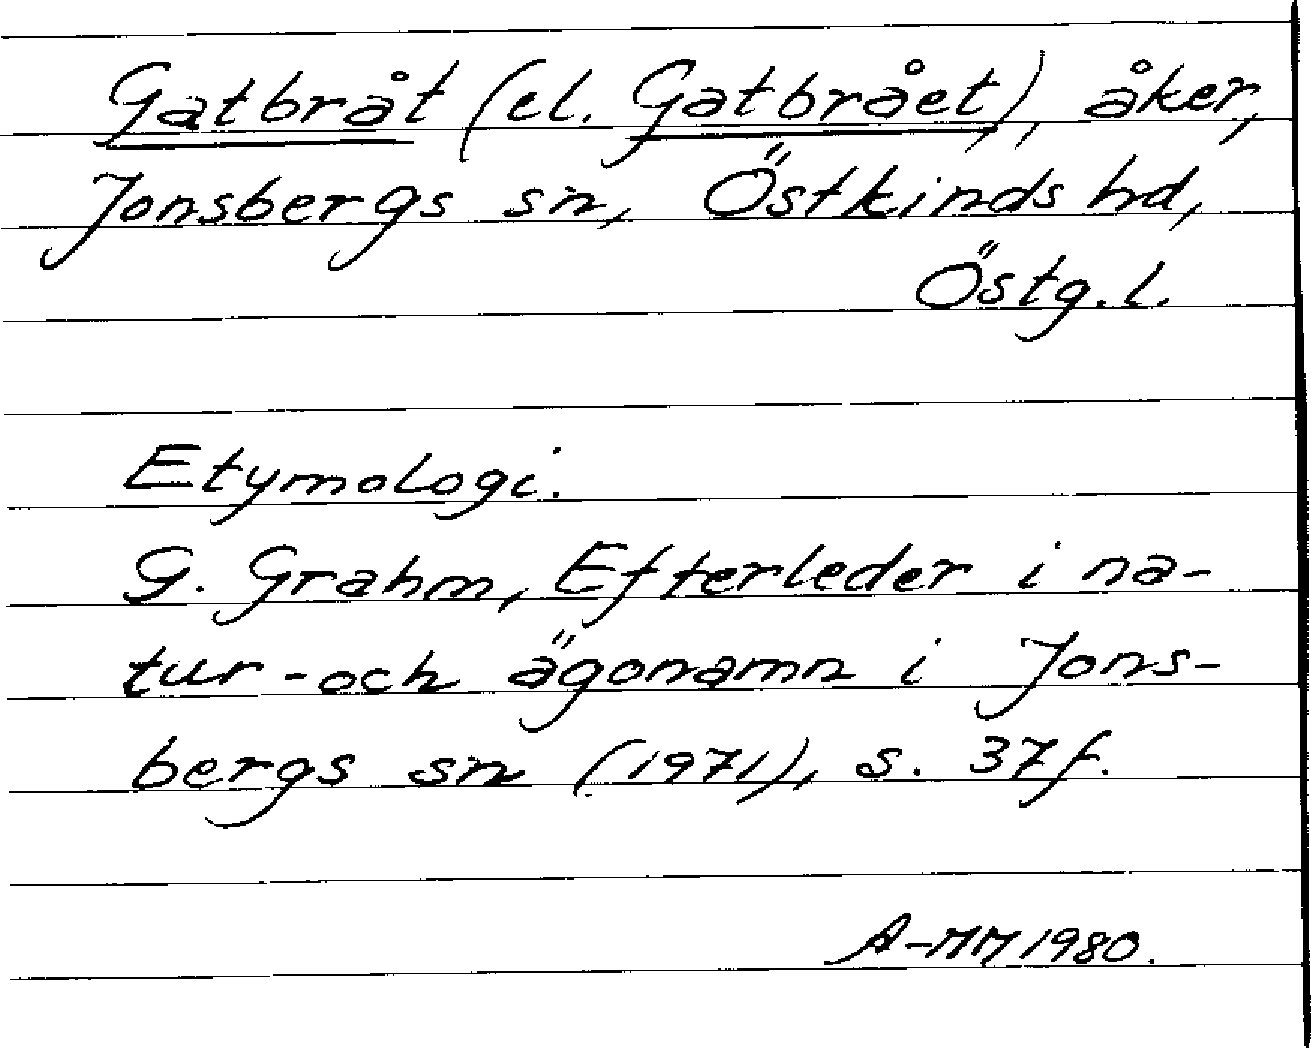 Gatbråt (el. Gatbrået), åker,
Jonsbergs sn, Östkinds hd,
Östg. l.
Etymologi.
G. Grahm, Efterleder i na-
tur- och ägonamn i Jons-
bergs sn (1971), s. 37 f.
A-MM 1980.